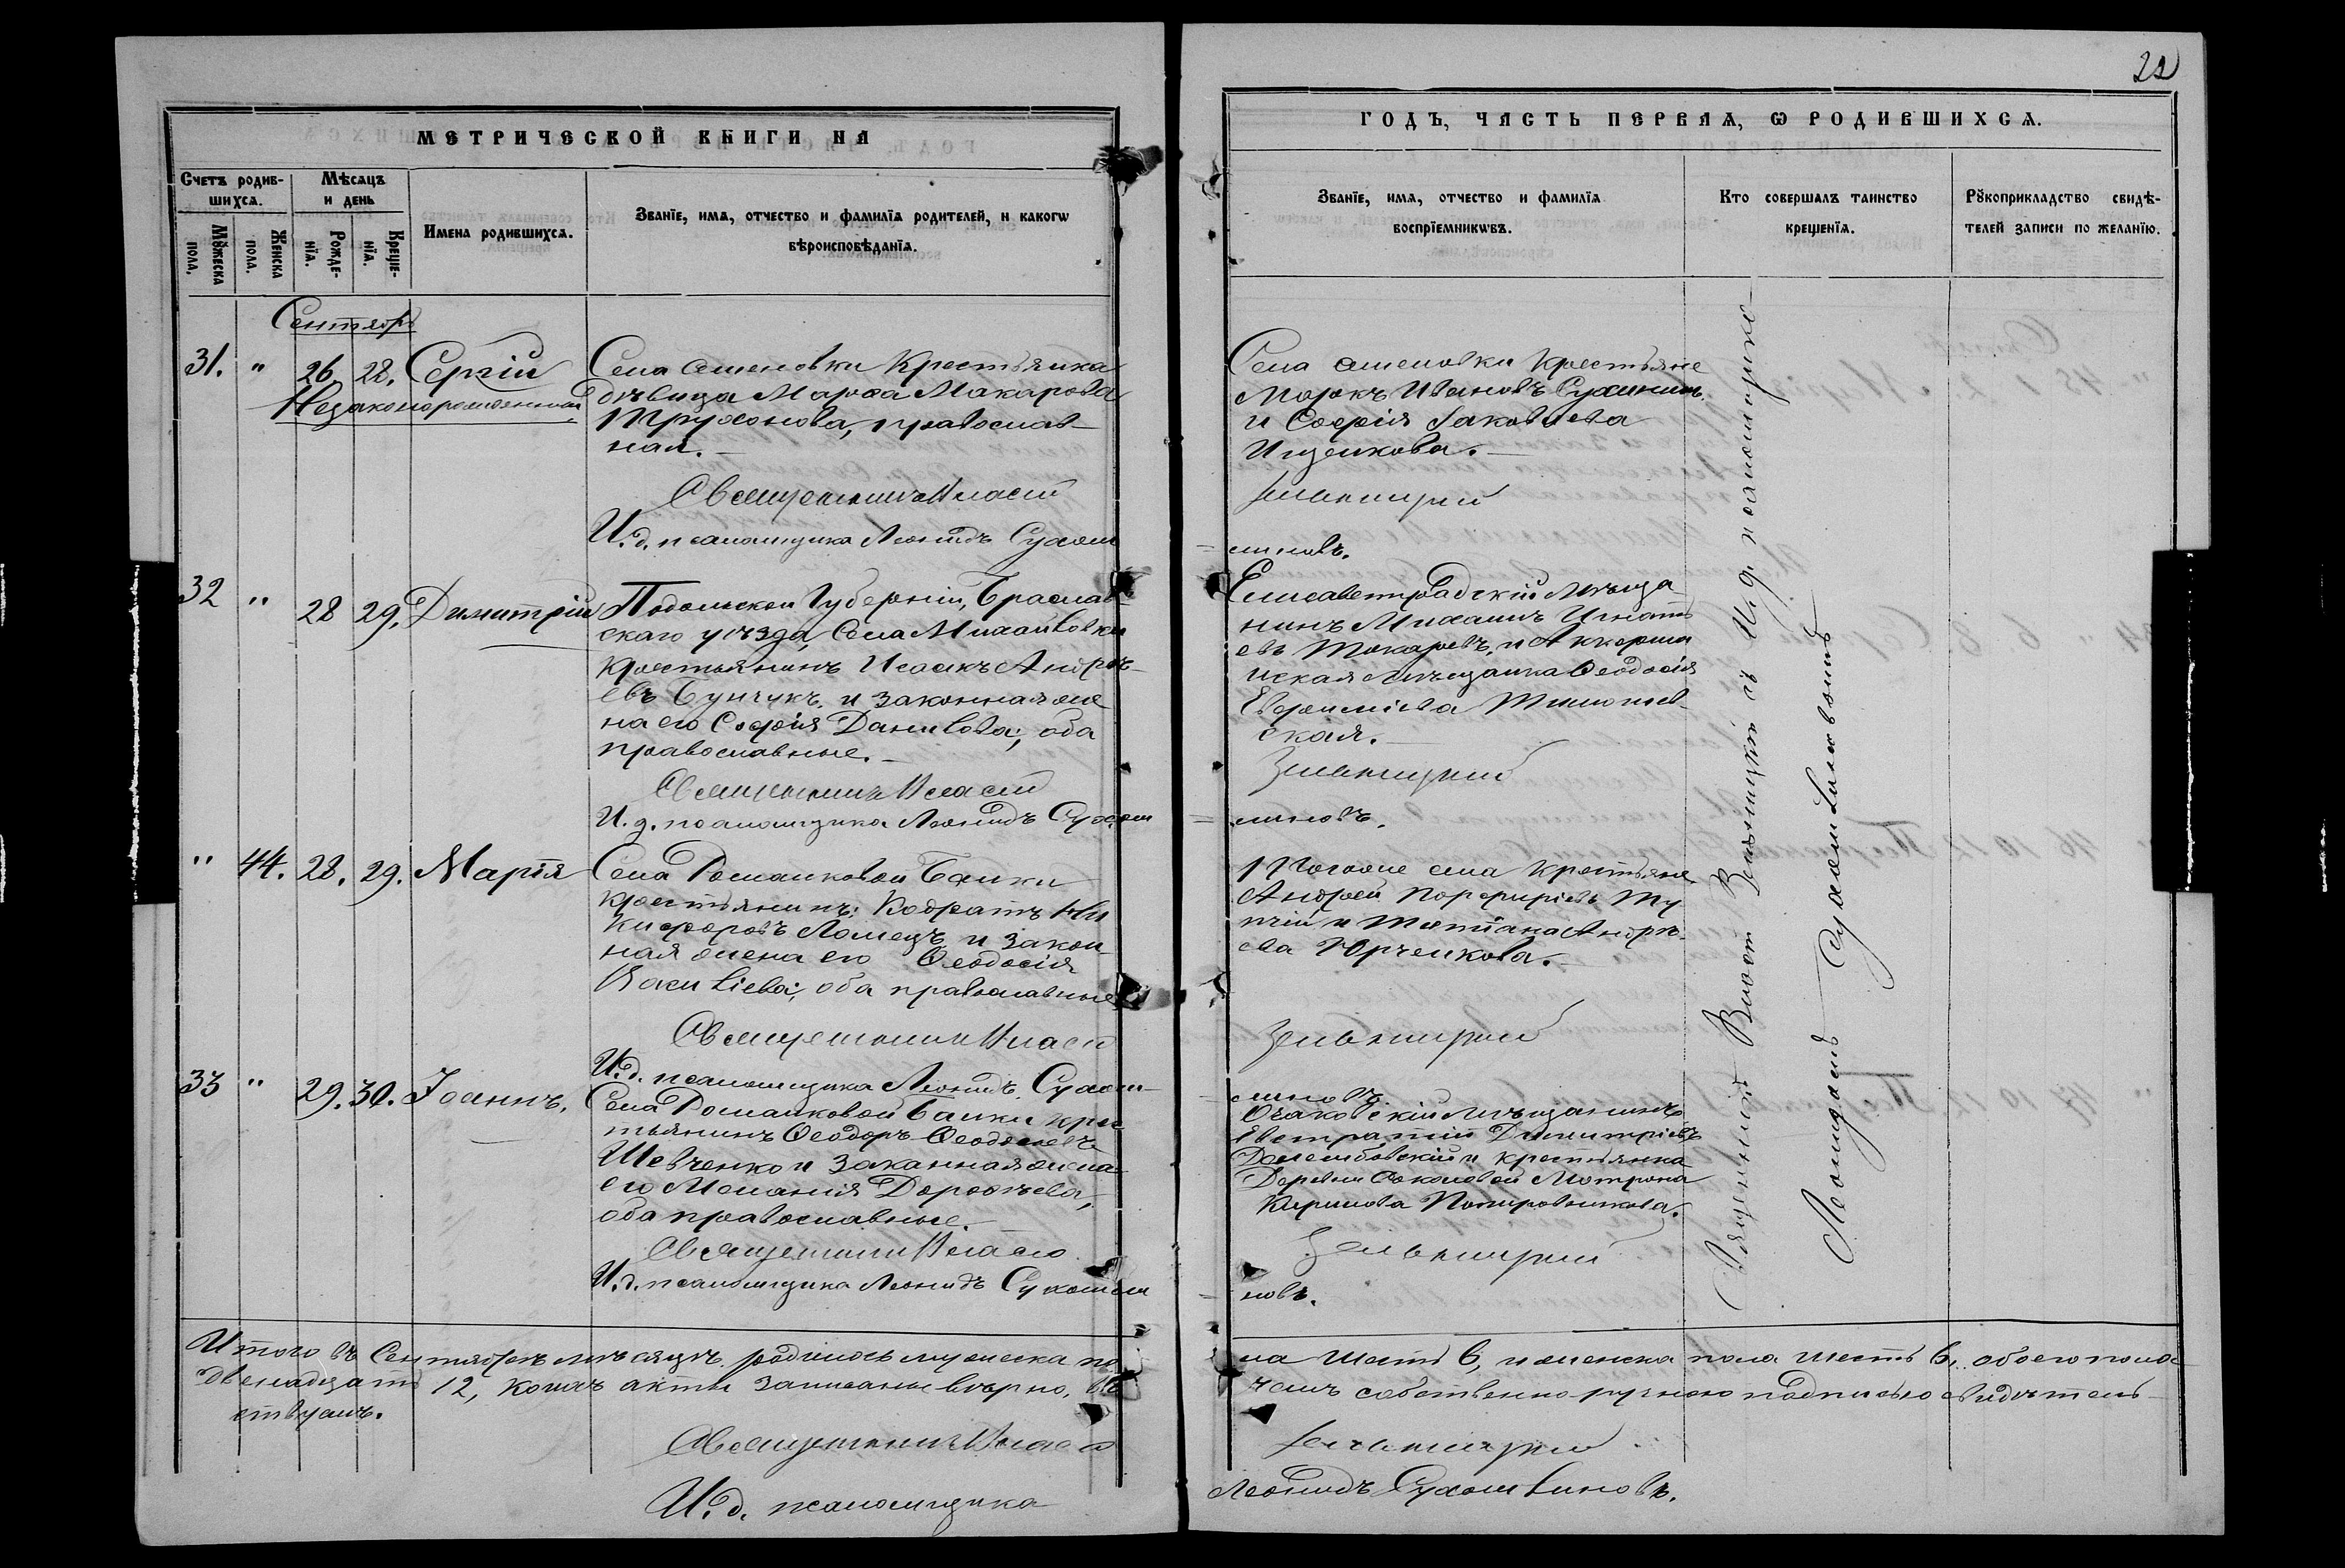 22
МЕТРИЧЕСКОЙ КНИГИ НА
ГОДЪ, ЧАСТЬ ПЕРВАЯ, Ѡ РОДИВШИХСЯ.
Счетъ родив-
шихся.
Мѣсяцъ
и день
Мꙋжеска
пола.
Женска
пола.
Рожде-
нїя.
Креще-
нїя.
Имена родившихся.
Званїе, имя, отчество и фамилїя родителей, и какогѡ
вѣроисповѣданїя.
Званїе, имя, отчество и фамилїя
воспрїемникѡвъ.
Кто совершалъ таинство
крещенїя.
Рꙋкоприкладство свидѣ-
телей записи по желанїю.
Сентябрь
31. " 26. 28. Сергій
Незаконорожденный
Села Семеновки Крестьянка
дѣвица Марѳа Макарова
Труханова, православ-
ная.
Священникъ Власій
И. д. псаломщика Леонидъ Сухом
Села Семеновки Крестьяне
Маркъ Ивановъ
и Софія Іаковлева
Ищенкова.
Зельницкій
линовъ.
32 " 28 29. Димитрій
Подольской Губерніи, Браслав-
скаго уѣзда, Села Михайловки
крестьянинъ Исаакъ Андрѣ-
евъ Бунчукъ и законная же
на его Софія Данилова; оба
православные.
Священникъ Власій
И. д. псаломщика Леонидъ Сухом
Елисаветградскій мѣща
нинъ Михаилъ Игнать
евъ Токаревъ, и Аккерман
ская мѣщанка Ѳеодосія
Евфиміева
ская.
Зельницкій
линовъ.
" 44. 28. 29. Марія
Села Романковой Балки
крестьянинъ: Кодратъ Ни
кифоровъ Ломецъ и закон
ная жена его Ѳеодосія
Василіева; оба православные
Священникъ Власій
И. д. псаломщика Леонидъ Сухом-
Тогоже села крестьяне
Андрей Порфиріевъ Ту
пчій и Татіана Андрѣ-
ева Юрченкова.
Зельницкій
линовъ.
33 " 29. 30. Іоаннъ.
Села Романковой Балки крес
тьянинъ Ѳеодоръ Ѳеодосіевъ
Шевченко и законная жена
его Меланія Дороѳѣева,
оба православные.
Священникъ Власій
И. д. псаломщика Леонидъ Сухомли
Очаковскій мѣщанинъ
Евстратій Димитріевъ
и крестьянка
Деревни Соколовой Мотрона
Кирилова
Зельницкій
новъ.
Священникъ Власій Зельницкій съ И. д. псаломщика
Леонидомъ Сухомлиновымъ
Итого въ Сентябрѣ мѣсяцѣ родилось мужеска по
ла шесть 6, и женска пола шесть 6, обоего пола
двенадцать 12, коихъ акты записаны вѣрно, въ
чемъ собственно-ручною подписью свидѣтель-
ствуемъ.
Священникъ Власій
Зельницкій
И. д. псаломщика
Леонидъ Сухомлиновъ.